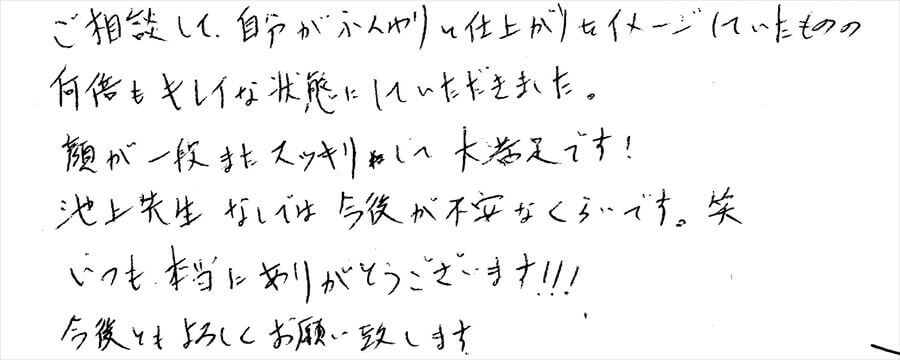 ご相談して、自分がふんわりと仕上がりをイメージしていたものの
何倍もキレイな状態にしていただきました。
顔が一段またスッキリして大満足です!
池上先生なしでは今後が不安なくらいです。笑
いつも本当にありがとうございます!!!
今後ともよろしくお願い致します